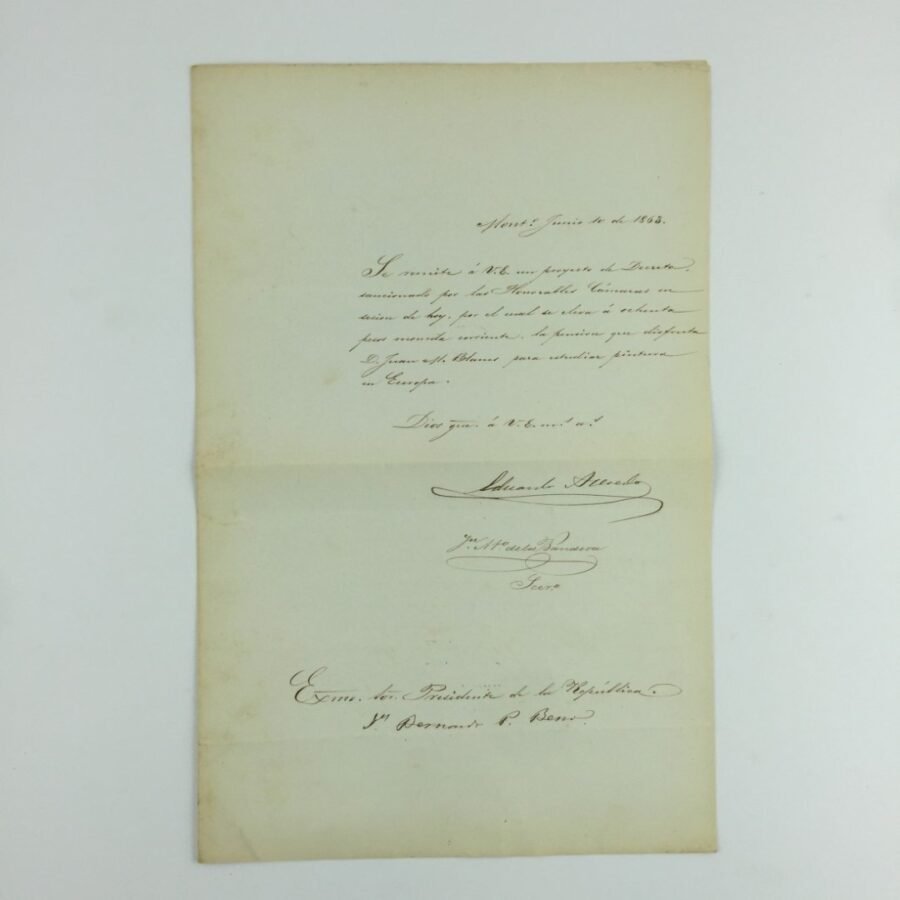 Mont.º Junio 10 de 1863.
Se remite á V.E. un proyecto de Decreto,
sancionado por las Honorables Cámaras en
sesion de hoy, por el cual se eleva á ochenta
pesos moneda corriente, la pension que disfruta
D. Juan M. Blanes para estudiar pintura
en Europa.
Dios gue. á V.E. m.s a.s
Eduardo Acevedo
Jn. Ma. de la
Secr.o
Exmo. Sor. Presidente de la República.
Dn Bernardo P. Berro.